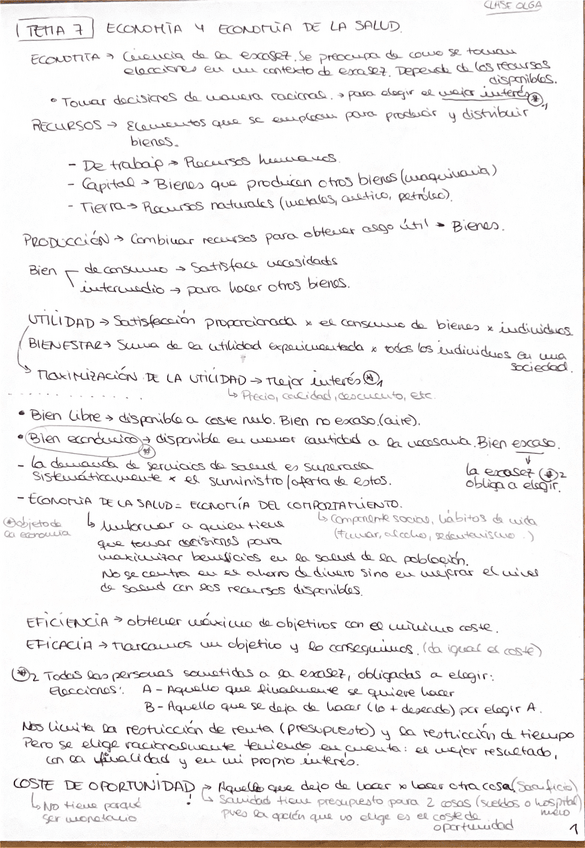 CLASE OLGA
TEMA 7 ECONOMÍA Y ECONOMÍA DE LA SALUD.
ECONOMÍA → Ciencia de la escasez. Se preocupa de como se toman
elecciones en un contexto de escasez. Depende de los recursos
disponibles.
• Tomar decisiones de manera racional. → para elegir el mejor interés *1
RECURSOS → Elementos que se emplean para producir y distribuir
bienes.
- De trabajo → Recursos humanos.
- Capital → Bienes que producen otros bienes (maquinaria)
- Tierra → Recursos naturales (metales, petróleo).
PRODUCCIÓN → Combinar recursos para obtener algo útil → Bienes.
Bien de consumo → Satisface necesidades
intermedio → para hacer otros bienes.
UTILIDAD → Satisfacción proporcionada x el consumo de bienes x individuos
BIENESTAR → Suma de la utilidad experimentada x todos los individuos en una
sociedad.
→ MAXIMIZACIÓN DE LA UTILIDAD → Mejor interés *1
↳ Precio, calidad, descuento, etc.
• Bien libre → disponible a coste nulo. Bien no escaso (aire).
• Bien económico → disponible en menor cantidad a la necesaria. Bien escaso.
*
- La demanda de servicios de salud es superada
sistemáticamente x el suministro/oferta de estos.
↓
la escasez *2
obliga a elegir.
- ECONOMÍA DE LA SALUD = ECONOMÍA DEL COMPORTAMIENTO.
* objeto de
la economía
↳ Informar a quien tiene
que tomar decisiones para
maximizar beneficios en la salud de la población.
No se centra en el ahorro de dinero sino en mejorar el nivel
de salud con los recursos disponibles.
↳ Componente social, hábitos de vida
(fumar, alcohol, sedentarismo..)
EFICIENCIA → obtener máximo de objetivos con el mínimo coste.
EFICACIA → Marcamos un objetivo y lo conseguimos. (da igual el coste)
*2 Todas las personas sometidas a la escasez, obligadas a elegir:
Elecciones: A - Aquello que finalmente se quiere hacer
B - Aquello que se deja de hacer (lo + deseado) por elegir A.
Nos limita la restricción de renta (presupuesto) y la restricción de tiempo
Pero se elige racionalmente teniendo en cuenta: el mejor resultado,
con la finalidad y en mi propio interés.
COSTE DE OPORTUNIDAD → Aquello que dejo de hacer x hacer otra cosa (Sacrificio)
↳ No tiene porqué
ser monetario
! ↳ Sanidad tiene presupuesto para 2 cosas (sueldos o hospital
pues la opción que no elige es el coste de
oportunidad
1